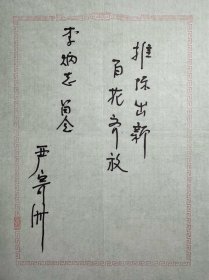 推陈出新
百花齐放
李炳志 留念
严寄洲